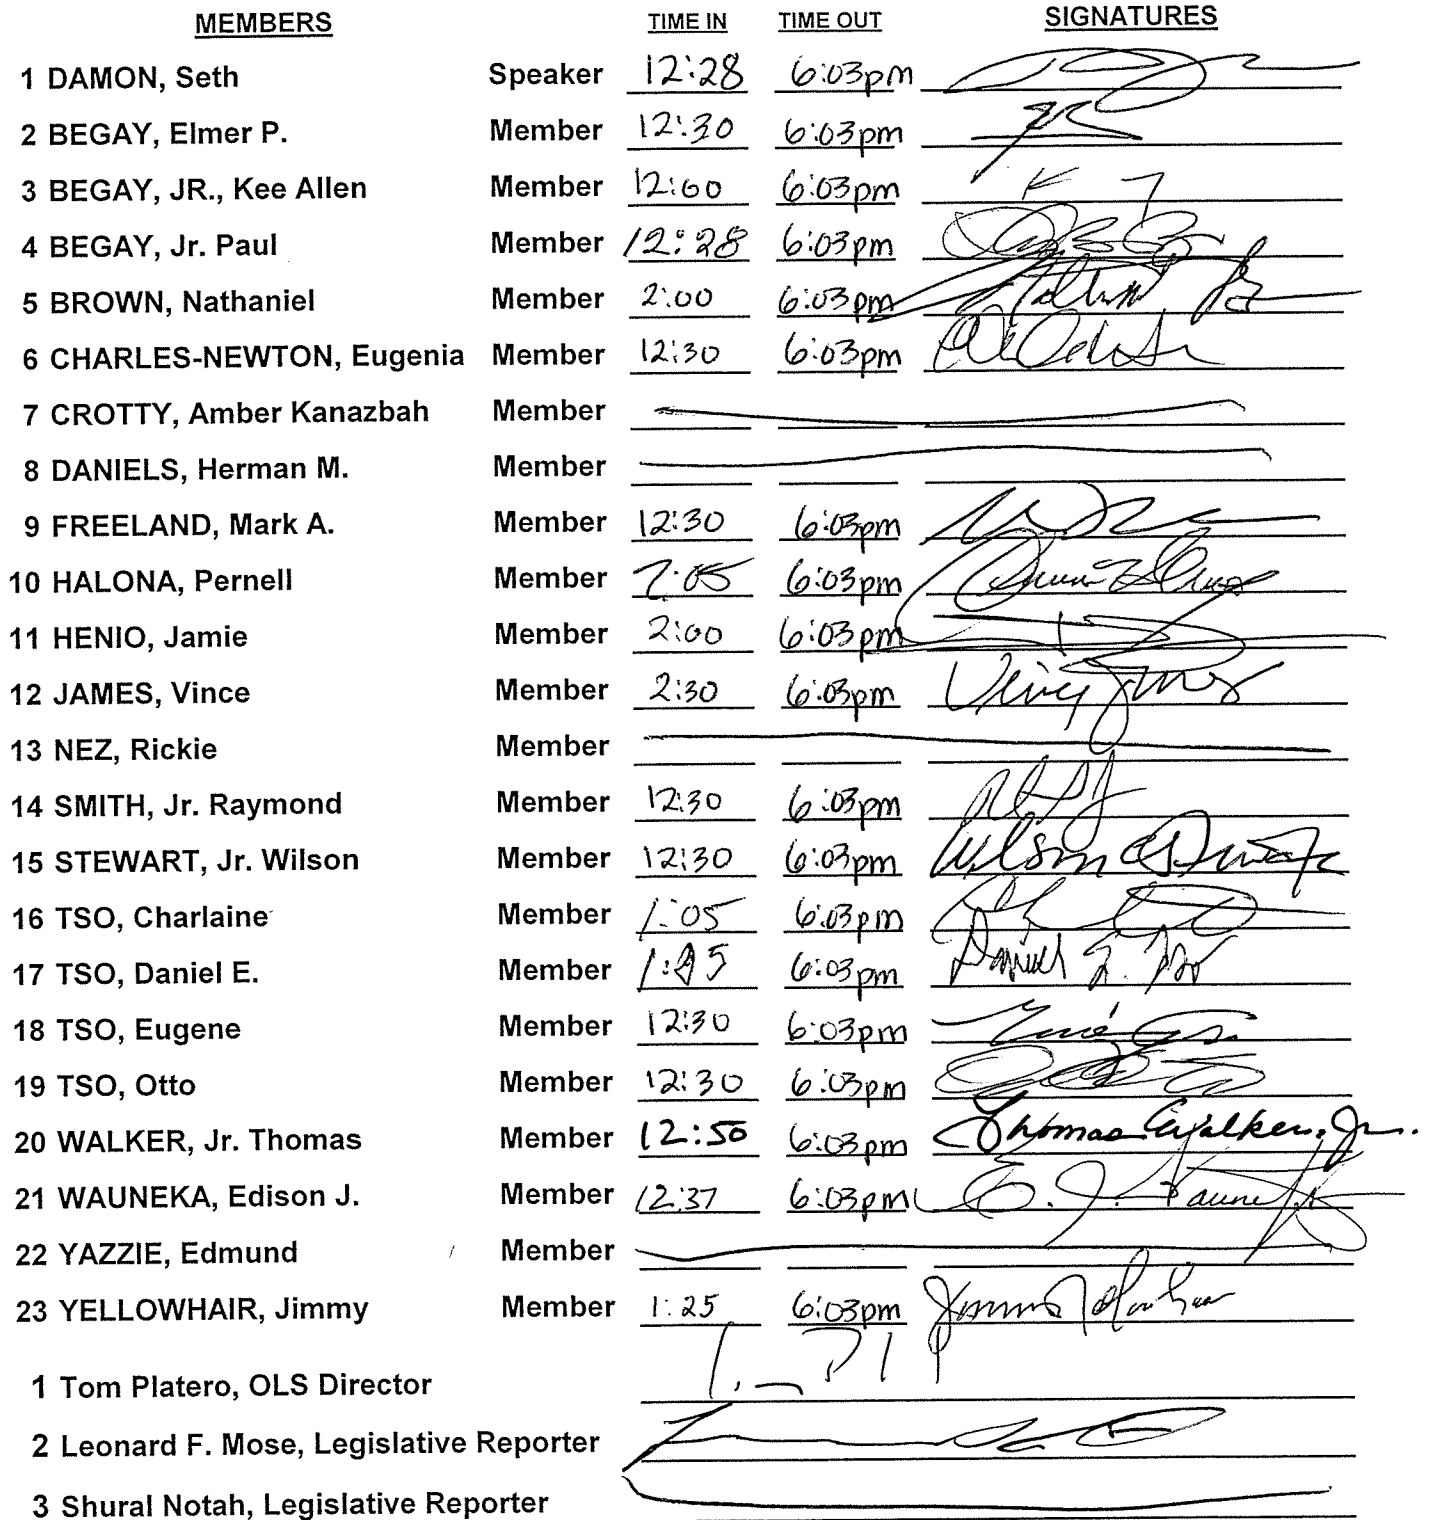 MEMBERS TIME IN TIME OUT SIGNATURES
1 DAMON, Seth Speaker 12:28 6:03pm
2 BEGAY, Elmer P. Member 12:30 6:03pm
3 BEGAY, JR., Kee Allen Member 12:00 6:03pm
4 BEGAY, Jr. Paul Member 12:28 6:03pm
5 BROWN, Nathaniel Member 2:00 6:03pm
6 CHARLES-NEWTON, Eugenia Member 12:30 6:03pm
7 CROTTY, Amber Kanazbah Member
8 DANIELS, Herman M. Member
9 FREELAND, Mark A. Member 12:30 6:03pm
10 HALONA, Pernell Member 6:03pm
11 HENIO, Jamie Member 2:00 6:03pm
12 JAMES, Vince Member 2:30 6:03pm
13 NEZ, Rickie Member
14 SMITH, Jr. Raymond Member 12:30 6:03pm
15 STEWART, Jr. Wilson Member 12:30 6:03pm Wilson
16 TSO, Charlaine Member 1:05 6:03pm
17 TSO, Daniel E. Member 6:03pm Daniel E. Tso
18 TSO, Eugene Member 12:30 6:03pm
19 TSO, Otto Member 12:30 6:03pm
20 WALKER, Jr. Thomas Member 12:50 6:03pm Thomas Walker, Jr.
21 WAUNEKA, Edison J. Member 12:37 6:03pm E. J. Wauneka
22 YAZZIE, Edmund Member
23 YELLOWHAIR, Jimmy Member 1:25 6:03pm
1 Tom Platero, OLS Director
2 Leonard F. Mose, Legislative Reporter
3 Shural Notah, Legislative Reporter